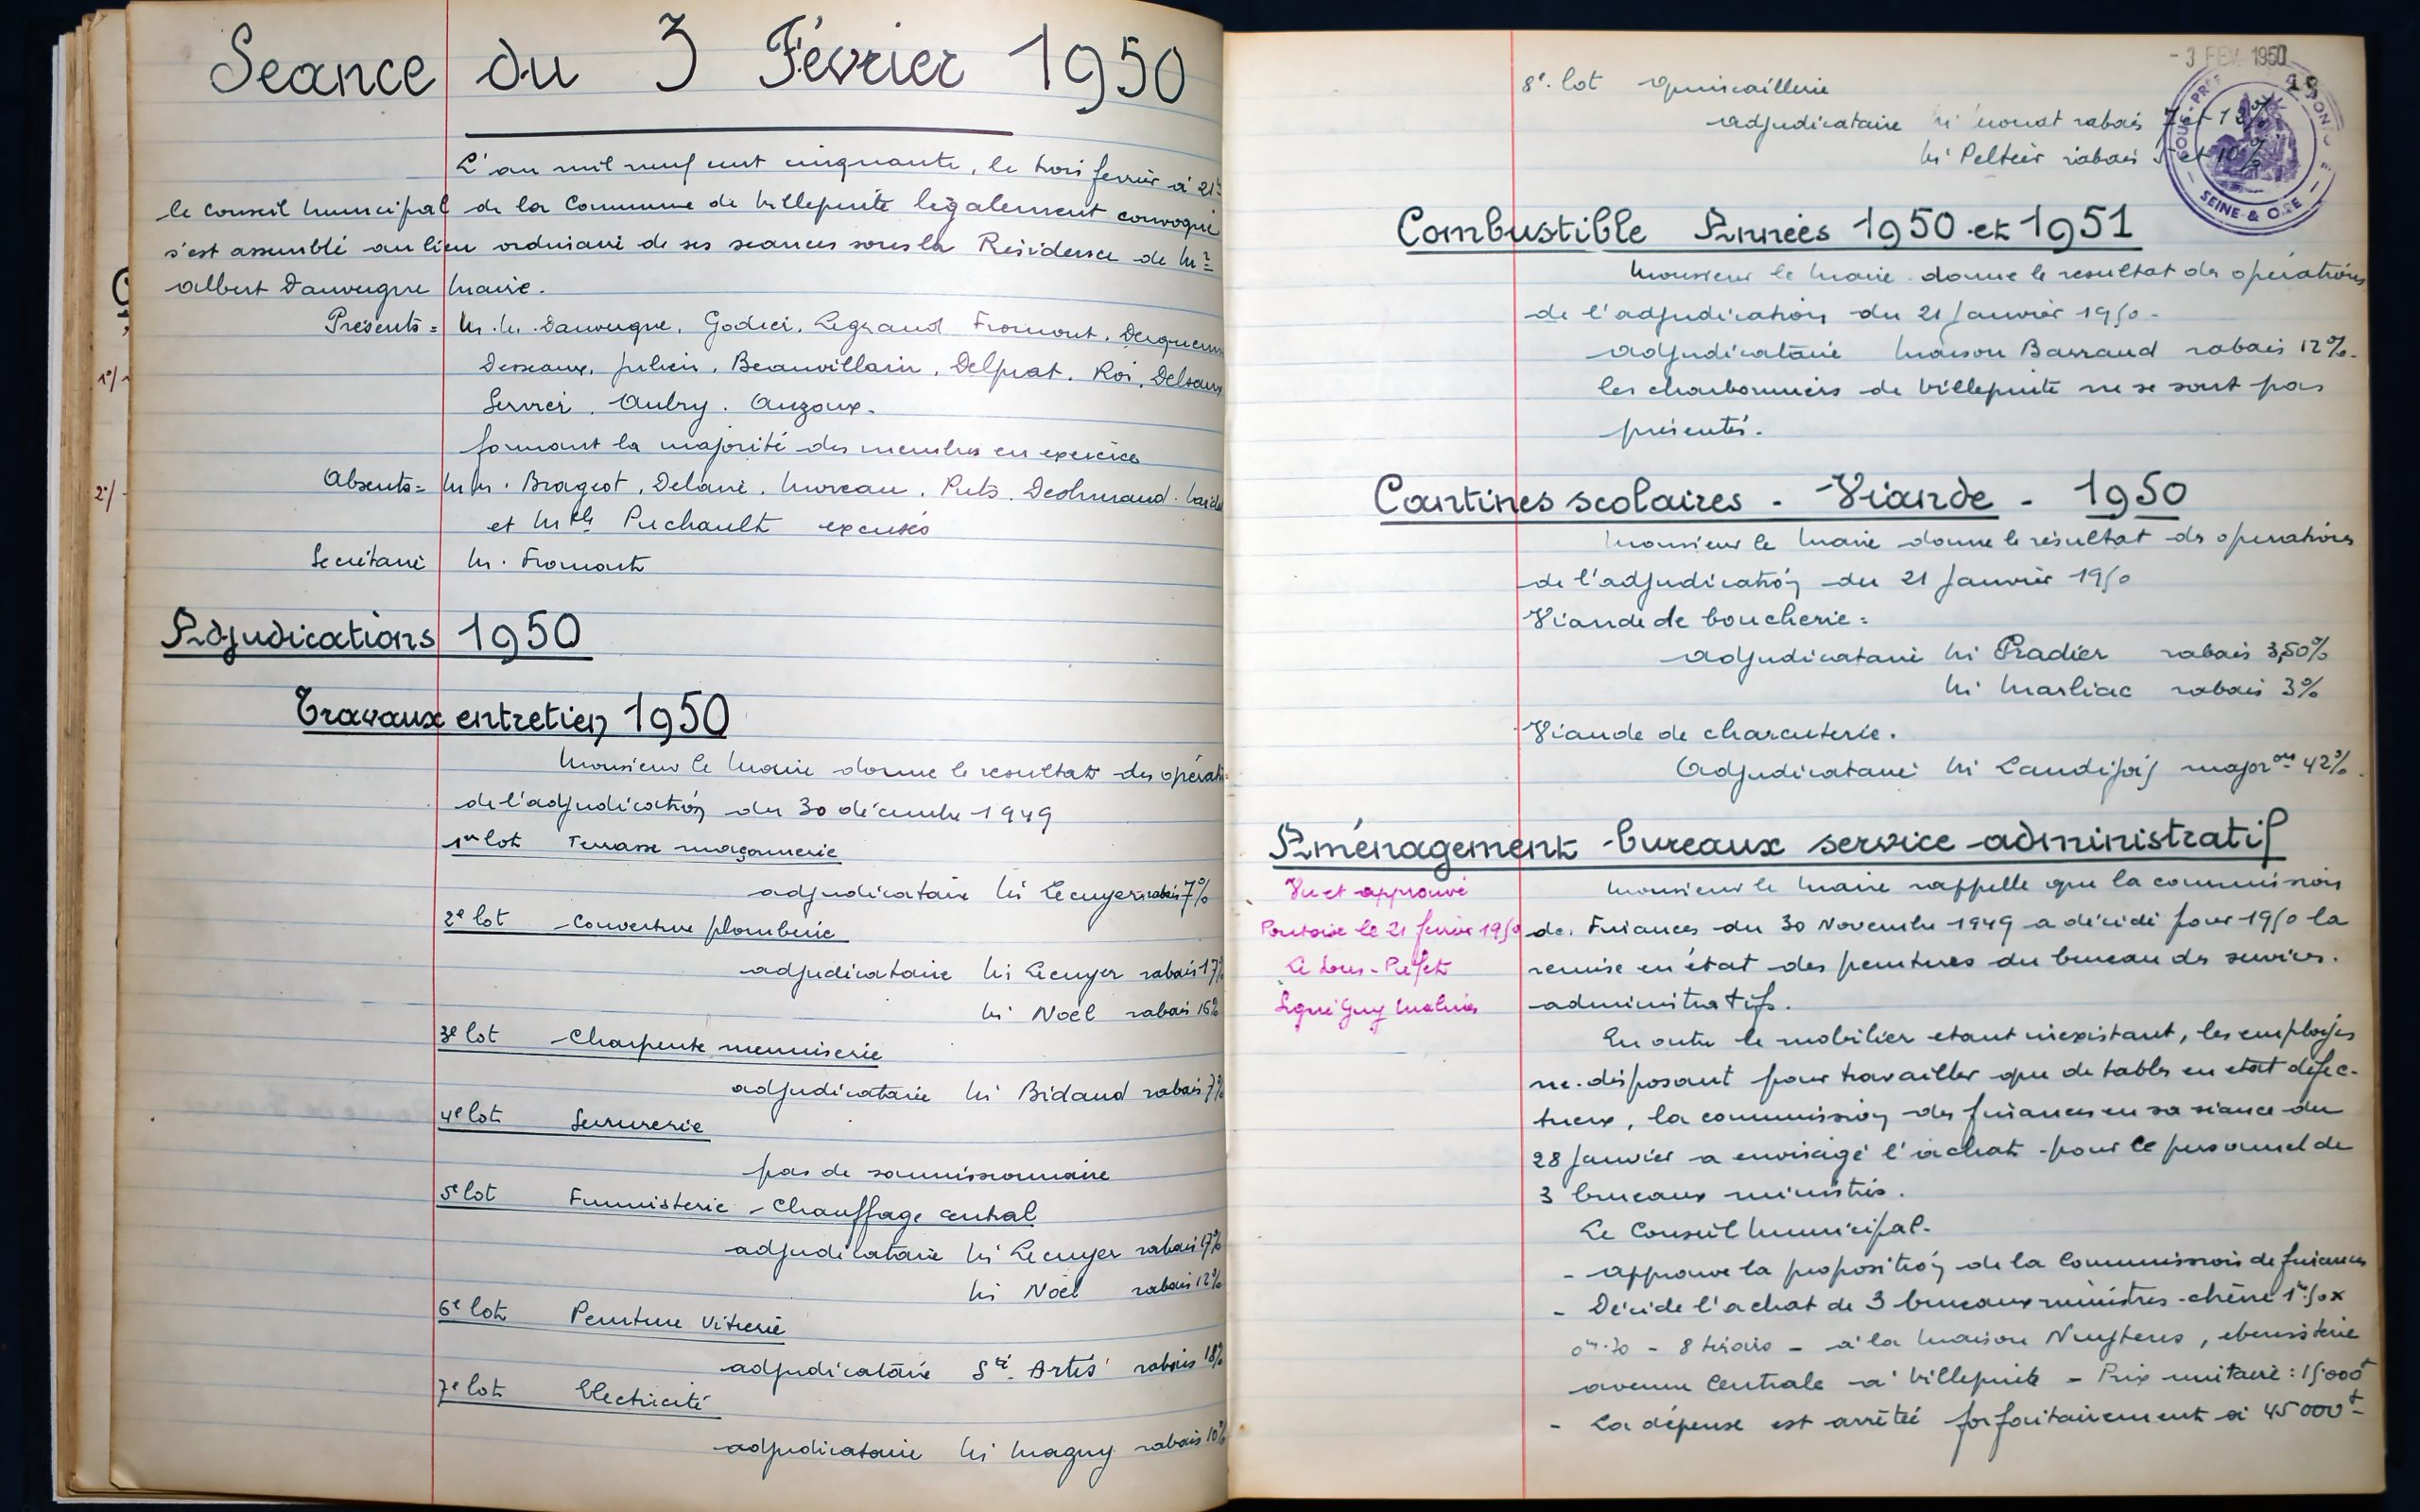 Seance du 3 Février 1950
L'an mil neuf cent cinquante, le trois fevrier à 21h
le Conseil Municipal de la Commune de Villepinte légalement convoqué
s'est assemblé au lieu ordinaire de ses seances sous la Résidence de Mr
Albert Dauvergne Maire.
Présents = M.M. Dauvergne, Godier, Legrand Fromont,
Desseaux, Julien, Beauvillain, Delprat, Roi, Delsaux
Servier, Aubry, Auzoux.
formant la majorité des membres en exercice
Absents = MM. Brageot, Delarie, Mureau, Puts,
et Melle Puchault excusés
Secrétaire M. Fromont
Adjudications 1950
Travaux entretien 1950
Monsieur le Maire donne le resultat des opérati
de l'adjudication du 30 décembre 1949
1er lot Terrasse maçonnerie
adjudicataire Mr Lecuyer rabais 7%
2e lot Couverture plomberie
adjudicataire Mr Lecuyer rabais 17%
Mr Noël rabais 16%
3e lot Charpente menuiserie
adjudicataire Mr Bidaud rabais 7%
4e lot Serrurerie
pas de soumissionnaire
5e lot Fumisterie - Chauffage central
adjudicataire Mr Lecuyer rabais 17%
Mr Noël rabais 12%
6e lot Peinture Vitrerie
adjudicataire Sté Artès rabais 18%
7e lot Electricité
adjudicataire Mr Magny rabais 10%
- 3 FEV. 1950
8e lot quincaillerie
adjudicataire Mr rabais 7 et 13%
Mr Peltier rabais 5 et 10%
SOUS-PRE PONTOISE
SEINE & OISE
Combustible Années 1950 et 1951
Monsieur le Maire donne le resultat des opérations
de l'adjudication du 21 Janvier 1950 -
adjudicataire Maison Barraud rabais 12%.
les charbonniers de Villepinte ne se sont pas
présentés.
Cantines scolaires - Viande - 1950
Monsieur le Maire donne le résultat des operations
de l'adjudication du 21 Janvier 1950
Viande de boucherie =
adjudicataire Mr Pradier rabais 3,50%
Mr Marliac rabais 3%
Viande de charcuterie.
Adjudicataire Mr majoron 42%.
Aménagement bureaux service administratif
Vu et approuvé
Pontoise le 21 fevrier 1950
Le Sous-Préfet
Signé Guy
Monsieur le Maire rappelle que la commission
des Finances du 30 Novembre 1949 a décidé pour 1950 la
remise en état des peintures du bureau des services
administratifs.
En outre le mobilier etant inexistant, les employés
ne disposant pour travailler que de tables en etat défec-
tueux, la commission des finances en sa séance du
28 Janvier a envisagé l'achat pour le personnel de
3 bureaux ministres.
Le Conseil Municipal.
- approuve la proposition de la Commission de finances
- Décide l'achat de 3 bureaux ministres chêne 1m50 x
0m.70 - 8 tiroirs - à la Maison Nuyttens, ebenisterie
avenue Centrale à Villepinte - Prix unitaire : 15000f
- La dépense est arrêtée forfaitairement à 45000f -